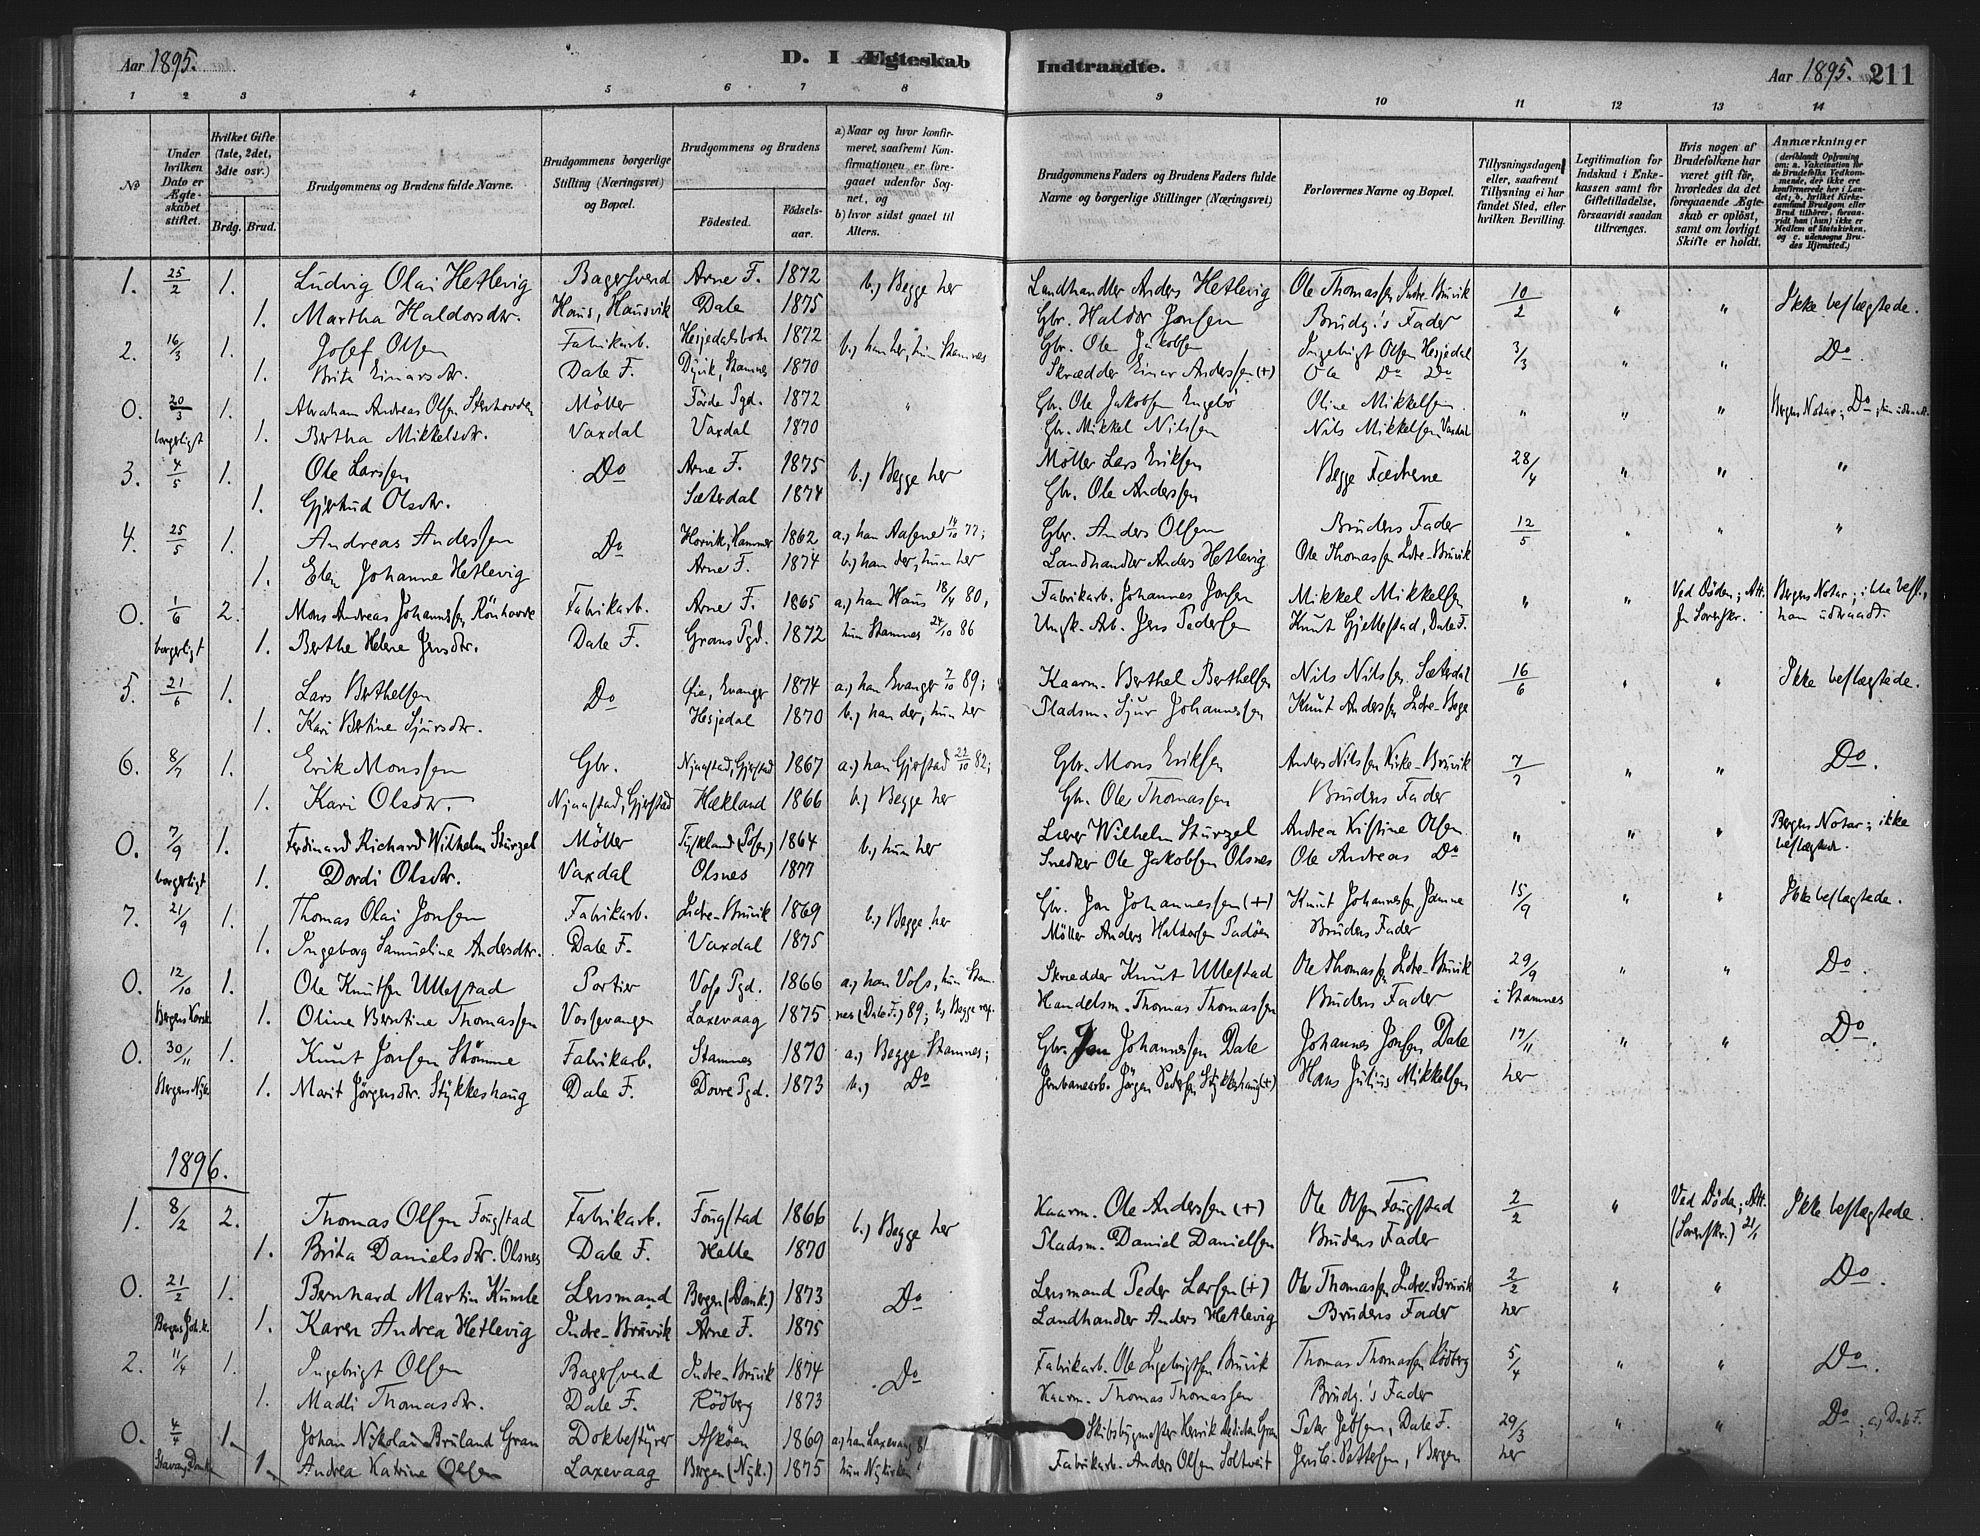 Aar 1895. D. I Ægteskab Indtraadte. Aar 1895. 211
1 2 3 4 5 6 7 8 9 10 11 12 13 14
No
Under hvilken Dato er Ægteskabet stiftet.
Hvilket Gifte (1ste, 2det, 3die osv.)
Brdg. Brud.
Brudgommens og Brudens fulde Navne.
Brudgommens borgerlige Stilling (Næringsvei) og Bopæl.
Brudgommens og Brudens
Födested. Födselsaar.
a) Naar og hvor konfirmeret, saafremt Konfirmationen er foregaaet udenfor Sognet, og
b) hvor sidst gaaet til Alters.
Brudgommens Faders og Brudens Faders fulde Navne og borgerlige Stillinger (Næringsvei)
Forlovernes Navne og Bopæl.
Tillysningsdagen eller, saafremt Tillysning ei har fundet Sted, efter hvilken Bevilling.
Legitimation for Indskud i Enkekassen samt for Giftetilladelse, forsaavidt saadan tiltrænges.
Hvis nogen af Brudefolkene har været gift för, hvorledes da det foregaaende Ægteskab er oplöst, samt om lovligt Skifte er holdt.
Anmærkninger
(deriblandt Oplysning om: a. Vakcination for de Brudefolks Vedkommende, der ikke ere konfirmerede her i Landet; b. hvilket Kirkesamfund Brudgom eller Brud tilhörer, forsaavidt han (hun) ikke er Medlem af Statskirken, og c. udensogns Brudes Hjemsted.)
1. 25/2 1. Ludvig Olai Hetlevig Bagersvend Arne F. 1872 b.) Begge her Landhandler Anders Hetlevig Ole Thomassen Indre-Bruvik 10/2 " " Ikke beslægtede.
1. Martha Haldorsdtr. Haus, Hausvik Dale 1875 Gbr. Haldor Jonsen Brudg.'s Fader
2. 16/3 1. Josef Olsen Fabrikarb. Hesjedalsbotn 1872 b.) han her, hun Stamnes Gbr. Ole Jakobsen Ingebrigt Olsen Hesjedal 3/3 " " Do.
1. Brita Einarsdtr. Dale F. Dyvik, Stamnes 1870 Skrædder Einar Andersen (+) Ole Do Do
0. 20/3 1. Abraham Andreas Olsen Möller Förde Pgd. 1872 " Gbr. Ole Jakobsen Engebö Oline Mikkelsen. " " " Bergens Notar; Do
borgerligt 1. Bertha Mikkelsdtr. Vaxdal Vaxdal 1870 Gbr. Mikkel Nilsen Nils Mikkelsen, Vaxdal
3. 4/5 1. Ole Larssen Do Arne F. 1875 b.) Begge her Möller Lars Eriksen Begge Fædrene 28/4 " " "
1. Gjertrud Olsdtr. Sæterdal 1874 Gbr. Ole Anderssen
4. 25/5 1. Andreas Anderssen Do Horvik, Hammer 1862 a.) han Aasene 14/10 77; Gbr. Anders Olsen Brudens Fader 12/5 " " "
1. Elen Johanne Hetlevig Arne F. 1874 b.) han der, hun her Landhandler Anders Hetlevig Ole Thomassen Indre-Bruvik
0. 1/6 2. Mons Andreas Johannessen Rönhovde Fabrikarb. Arne F. 1865 a.) han Haus 18/4 80, Fabrikarb. Johannes Jonsen Mikkel Mikkelsen " " Ved Döden; Att. Bergens Notar; ikke besl.,
borgerligt 1. Berthe Helene Jensdtr. Dale F. Grans Pgd. 1872 hun Stamnes 24/10 86 Ungk. Arb. Jens Pedersen Knut Gjellestad, Dale F. fr Sorenskr. han udtraadt.
5. 21/6 1. Lars Berthelsen Do Öie, Evanger 1874 a.) han Evanger 7/10 89; Kaarm. Berthel Berthelsen Nils Nilsen Sæterdal 16/6 " " Ikke beslægtede.
1. Kari Bertine Sjursdtr. Hesjedal 1870 b.) han der, hun her Pladsm. Sjur Johannessen Knut Andersen Indre-Boge
6. 8/7 1. Erik Monssen Gbr. Njaastad, Gjerstad 1867 a.) han Gjerstad 22/10 82; Gbr. Mons Eriksen Anders Nilsen Kirke-Bruvik 7/7 " " Do.
1. Kari Olsdtr. Njaastad, Gjerstad Hækland 1866 b.) Begge her Gbr. Ole Thomassen Brudens Fader
0. 7/9 1. Ferdinard Richard Wilhelm Stürzel Möller Tyskland (Posen) 1864 b.) hun her Lærer Wilhelm Stürzel Andrea Kristine Olsen " " " Bergens Notar; ikke beslægtede.
borgerligt 1. Dordi Olsdtr. Vaxdal Olsnes 1877 Snedker Ole Jakobsen Olsnes Ole Andreas Do
7. 21/9 1. Thomas Olai Jonsen Fabrikarb. Indre-Bruvik 1869 b.) Begge her Gbr. Jon Johannessen (+) Knut Johannesen Jamne 15/9 " " Ikke beslægtede.
1. Ingeborg Samueline Andersdtr. Dale F. Vaxdal 1875 Möller Anders Haldorsen Padöen Brudens Fader
0. 12/10 1. Ole Knutsen Ullestad Portier Voss Pgd. 1866 a.) han Voss, hun Stam- Skrædder Knut Ullestad Ole Thomassen Indre-Bruvik 29/9 " " Do.
Bergens Korsk. 1. Oline Berntine Thomassen Vossevangen Laxevaag 1875 nes (Dale F.) 89; b) Begge Handelsm. Thomas Thomassen Brudens Fader i Stamnes
0. 30/11 1. Knut Jonsen Stömme Fabrikarb. Stamnes 1870 a.) Begge Stamnes; Gbr. Jon Johannessen Dale Johannes Jonsen Dale 17/11 " " Do.
Bergens Nyk. 1. Marit Jörgensdtr. Stykkeshaug Dale F. Dovre Pgd. 1873 b.) Do Jernbanearb. Jörgen Pedersen Stykkeshaug (+) Hans Julius Mikkelsen her
1896.
1. 8/2 2. Thomas Olsen Fougstad Fabrikarb. Fougstad 1866 b.) Begge her Kaarm. Ole Anderssen (+) Ole Olsen Fougstad 2/2 " Ved Döden; Att. Ikke beslægtede.
1. Brita Danielsdtr. Olsnes Dale F. Helle 1870 Pladsm. Daniel Danielsen Brudens Fader (Sorenskr.) 21/1
0. 21/2 1. Bernhard Martin Kumle Lensmand Bergen (Domk.) 1873 Do Lensmand Peder Larsen (+) Ole Thomassen Indre-Bruvik 2/2 " " Do.
Bergens Joh.k. 1. Karen Andrea Hetlevig Indre-Bruvik Arne F. 1875 Landhandler Anders Hetlevig Brudens Fader her
2. 11/4 1. Ingebrigt Olsen Bagersvend Indre-Bruvik 1874 Do Fabrikarb. Ole Ingebrigtsen Bruvik Thomas Thomassen Rödberg 5/4 " " Do.
1. Madli Thomasdtr. Dale F. Rödberg 1873 Kaarm. Thomas Thomassen Brudg.'s Fader
0. 4/4 1. Johan Nikolai Bruland Gran Dokbestyrer Asköen 1869 a.) han Laxevaag Skibsbygmester Henrik Gran Peter Jebsen, Dale F. 29/3 " " Do; c) Dale F.
Stavang. Domk. 1. Andrea Katrine Olsen Laxevaag Bergen (Nyk.) 1875 hun Nykirken Fabrikarb. Anders Olsen Soltveit Pettersen, Bergen her